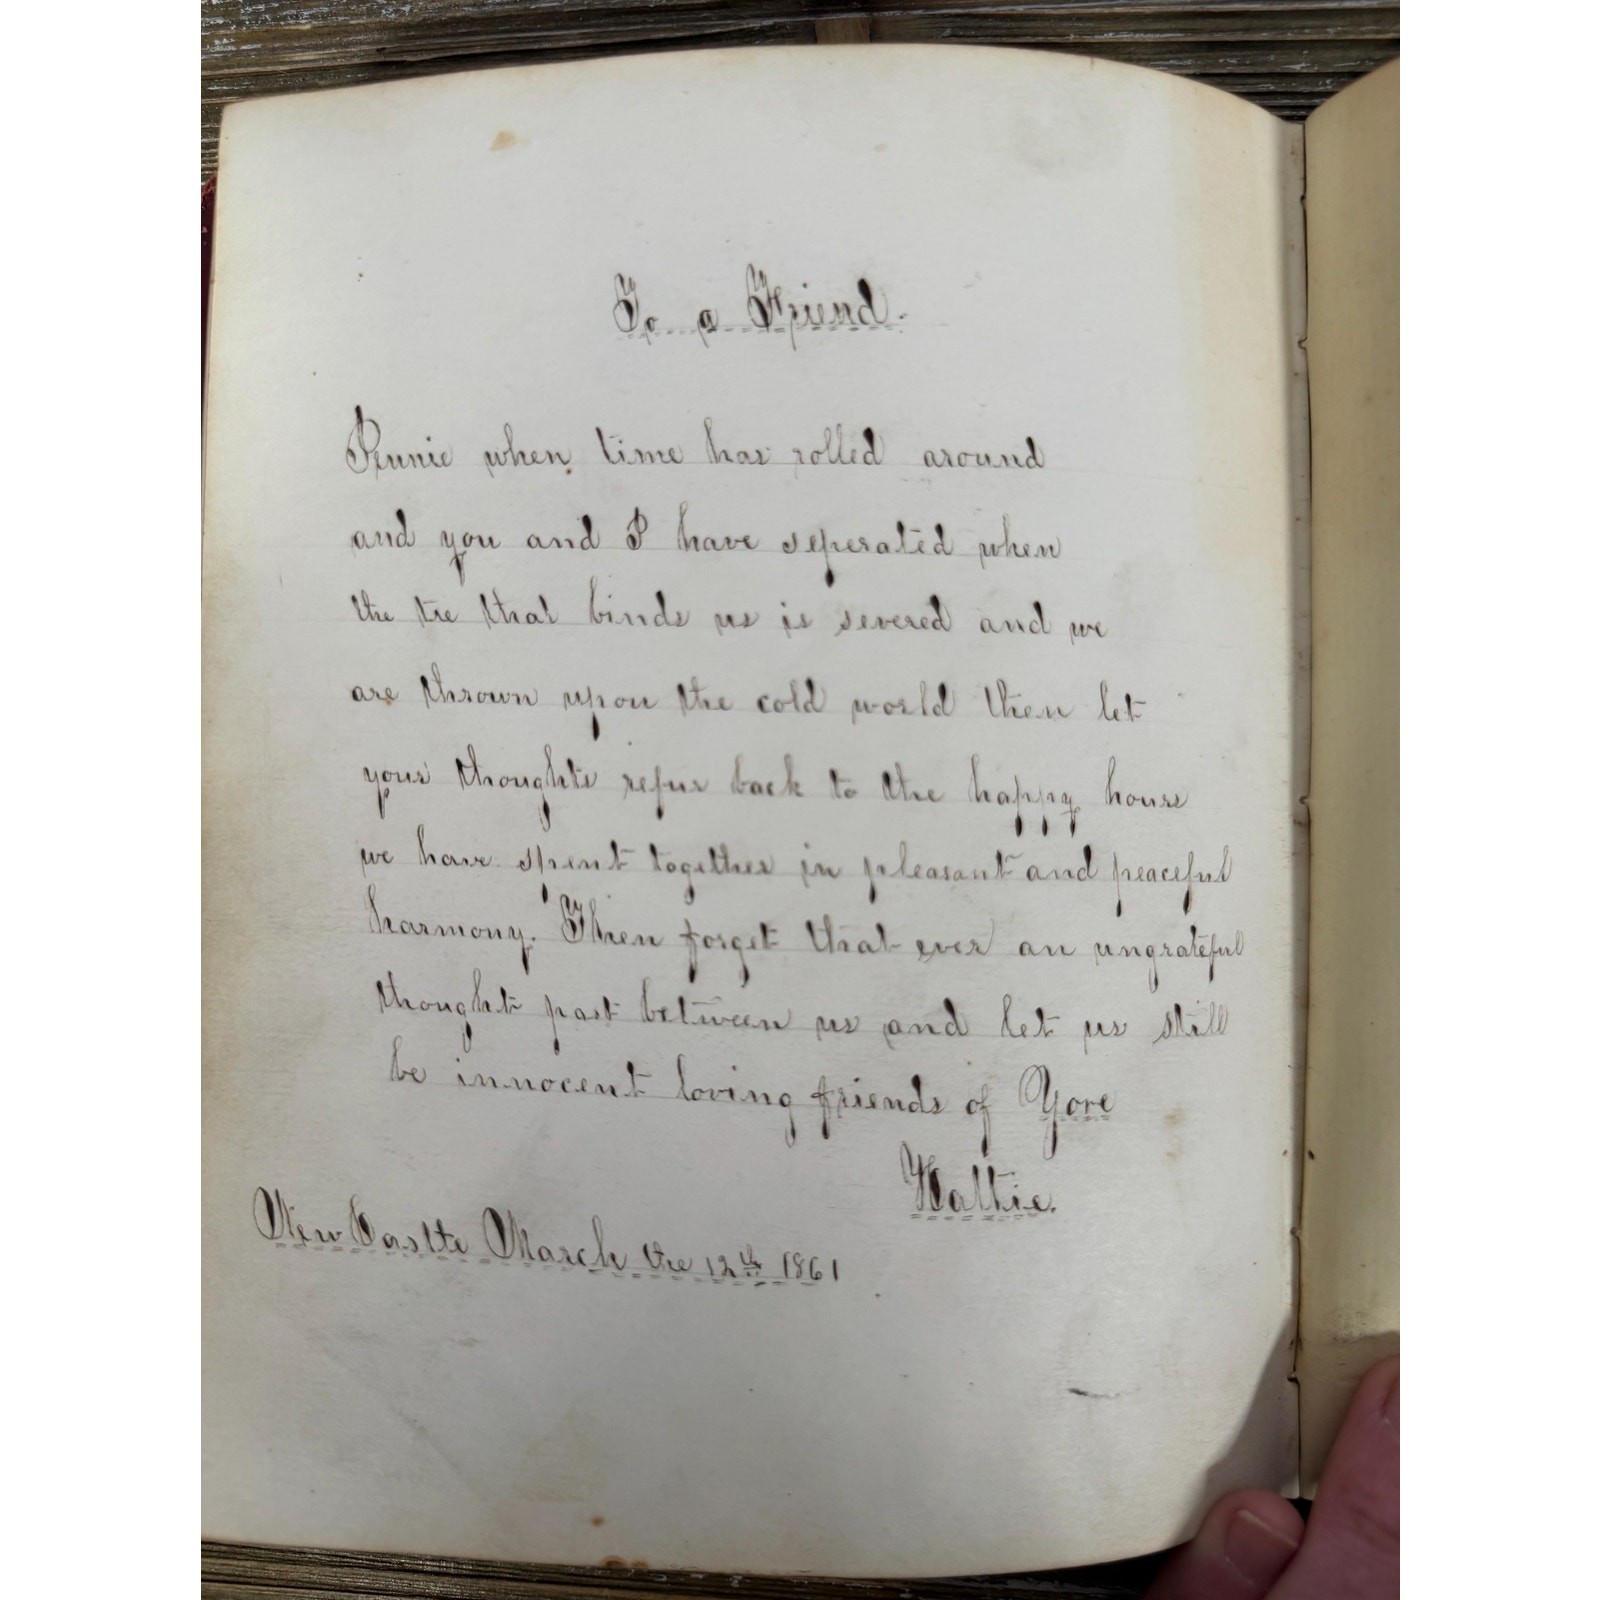 To a Friend.
Pennie when time has rolled around
and you and I have seperated when
the tie that binds us is severed and we
are thrown upon the cold world then let
your thoughts refur back to the happy hours
we have spent together in pleasant and peaceful
harmony. Then forget that ever an ungrateful
thought past between us and let us still
be innocent loving friends of Yore
Hattie.
New Castle March the 12th 1861